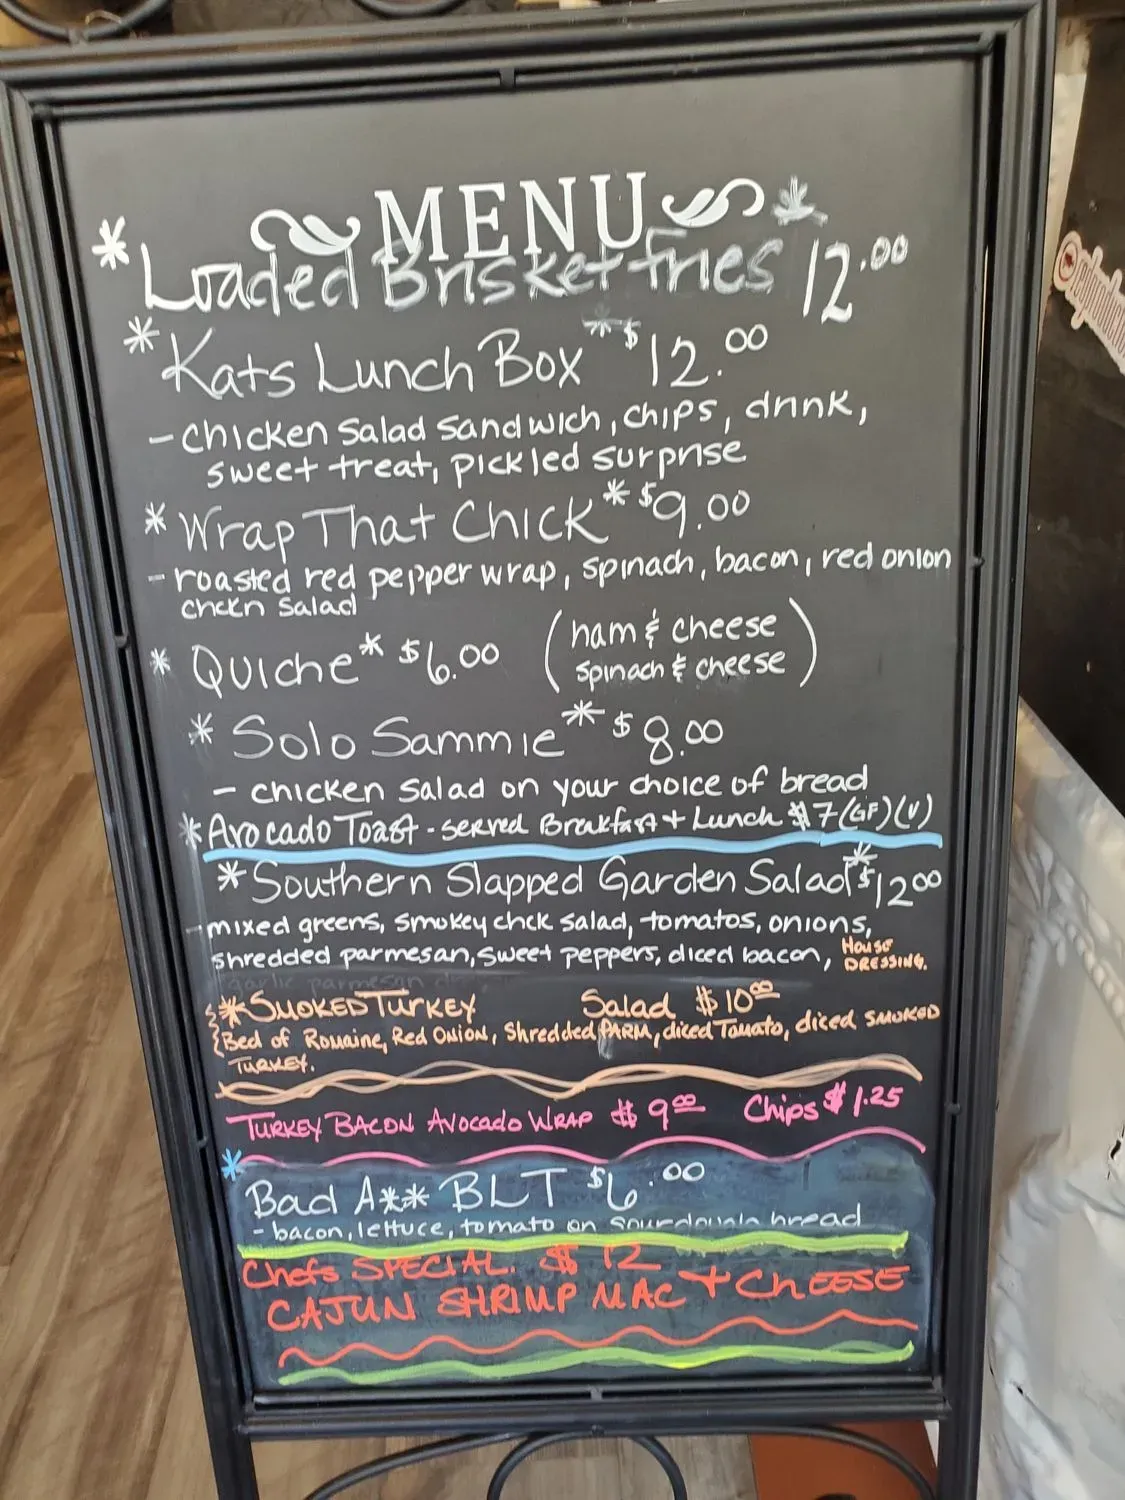 MENU
*Loaded Brisket fries* 12.00
*Kats Lunch Box* $12.00
- chicken salad sandwich, chips, drink,
sweet treat, pickled surprise
*Wrap That Chick* $9.00
- roasted red pepper wrap, spinach, bacon, red onion
chckn salad
* Quiche* $6.00 (ham & cheese
spinach & cheese)
* Solo Sammie* $8.00
- chicken salad on your choice of bread
*Avocado Toast - served Breakfast + Lunch $7 (GF)(V)
*Southern Slapped Garden Salad* $12.00
- mixed greens, smokey chck salad, tomatos, onions,
shredded parmesan, sweet peppers, diced bacon, House
DRESSING.
garlic parmesan
*SMOKED TURKEY Salad $10.00
Bed of Romaine, Red ONION, Shredded PARM, diced Tomato, diced SMOKED
TURKEY.
TURKEY BACON AVOCADO WRAP $9.00 Chips $1.25
*
Bad A** BLT $6.00
- bacon, lettuce, tomato on sourdough bread
Chefs SPECIAL. $12
CAJUN SHRIMP MAC + CHEESE